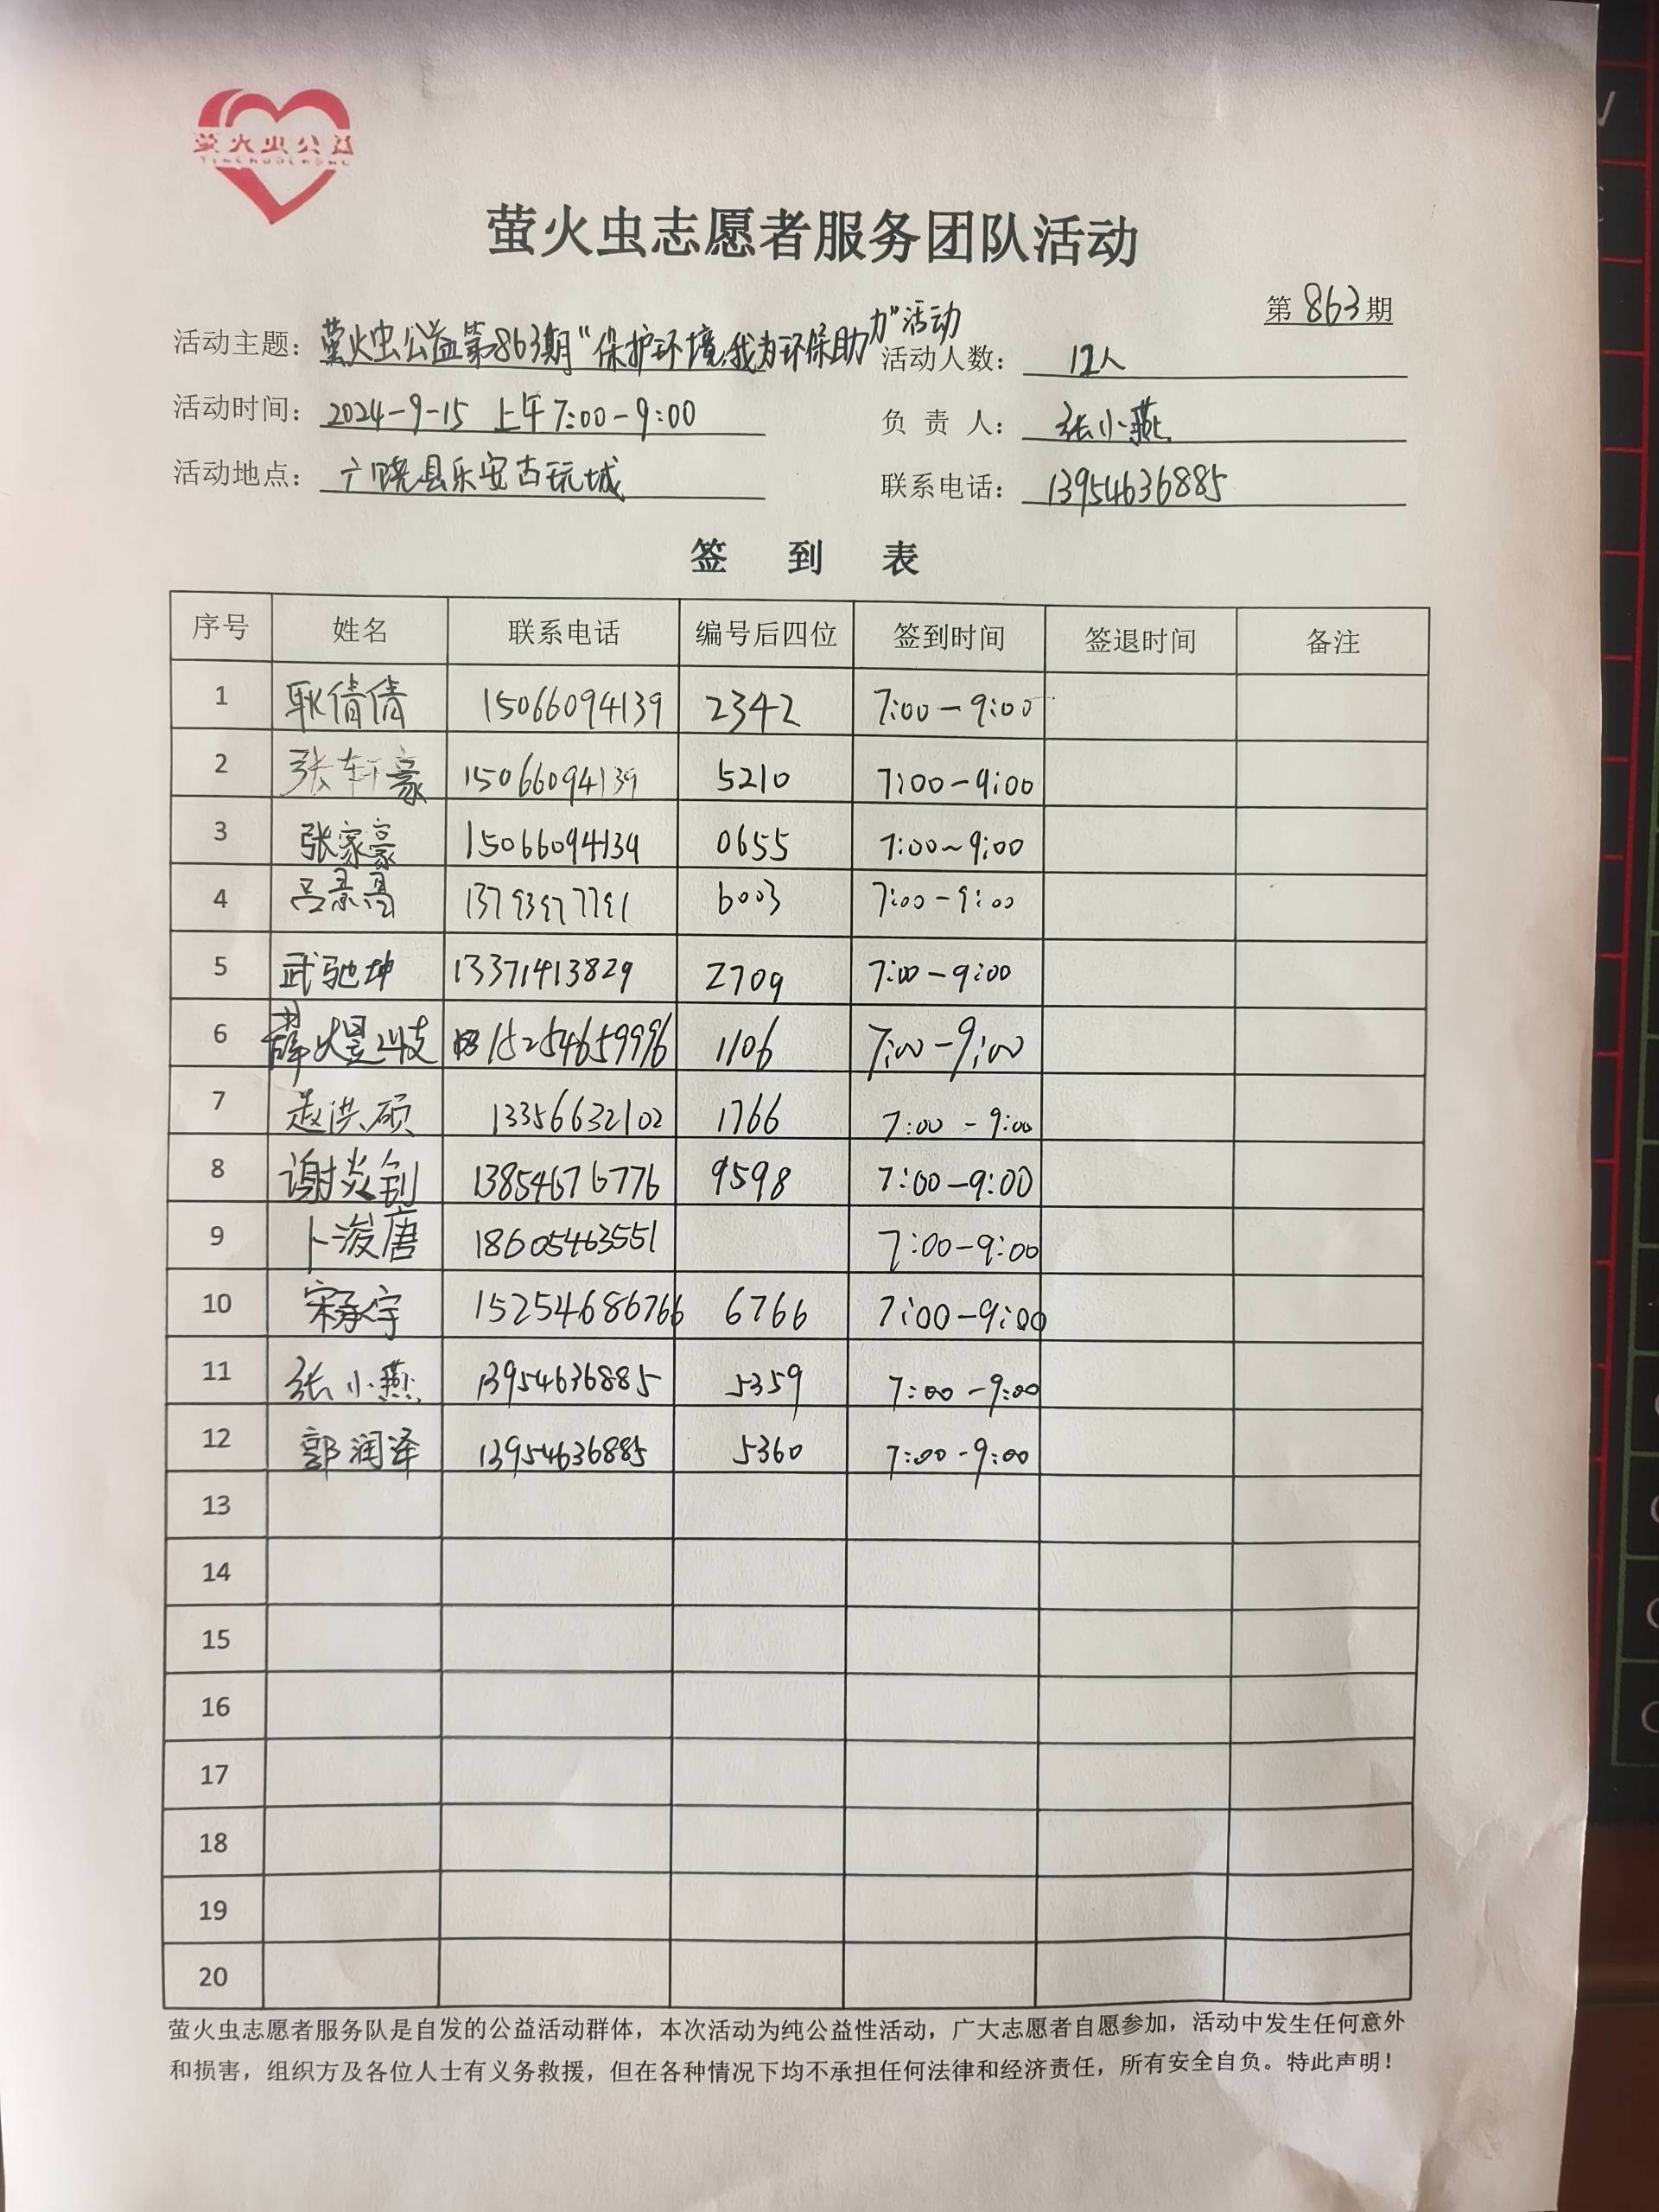 萤火虫公益
萤火虫志愿者服务团队活动
第 863 期
活动主题：萤火虫公益第863期"保护环境，我为环保助力"活动 活动人数：12人
活动时间：2024-9-15 上午7:00-9:00 负 责 人：张小燕
活动地点：广饶县乐安古玩城 联系电话：13954636885
签 到 表
序号 姓名 联系电话 编号后四位 签到时间 签退时间 备注
1 耿倩倩 15066094139 2342 7:00-9:00
2 张轩豪 15066094139 5210 7:00-9:00
3 张家豪 15066094139 0655 7:00~9:00
4 吕景昌 13793977791 6003 7:00-9:00
5 武驰坤 13371413829 2709 7:00-9:00
6 薛 15254659996 1106 7:00-9:00
7 赵洪硕 13356632102 1766 7:00-9:00
8 谢炎钊 13854676776 9598 7:00-9:00
9 卜浚唐 18605463551 7:00-9:00
10 宋承宇 15254686766 6766 7:00-9:00
11 张小燕 13954636885 5359 7:00-9:00
12 郭润泽 13954636885 5360 7:00-9:00
13
14
15
16
17
18
19
20
萤火虫志愿者服务队是自发的公益活动群体，本次活动为纯公益性活动，广大志愿者自愿参加，活动中发生任何意外
和损害，组织方及各位人士有义务救援，但在各种情况下均不承担任何法律和经济责任，所有安全自负。特此声明！